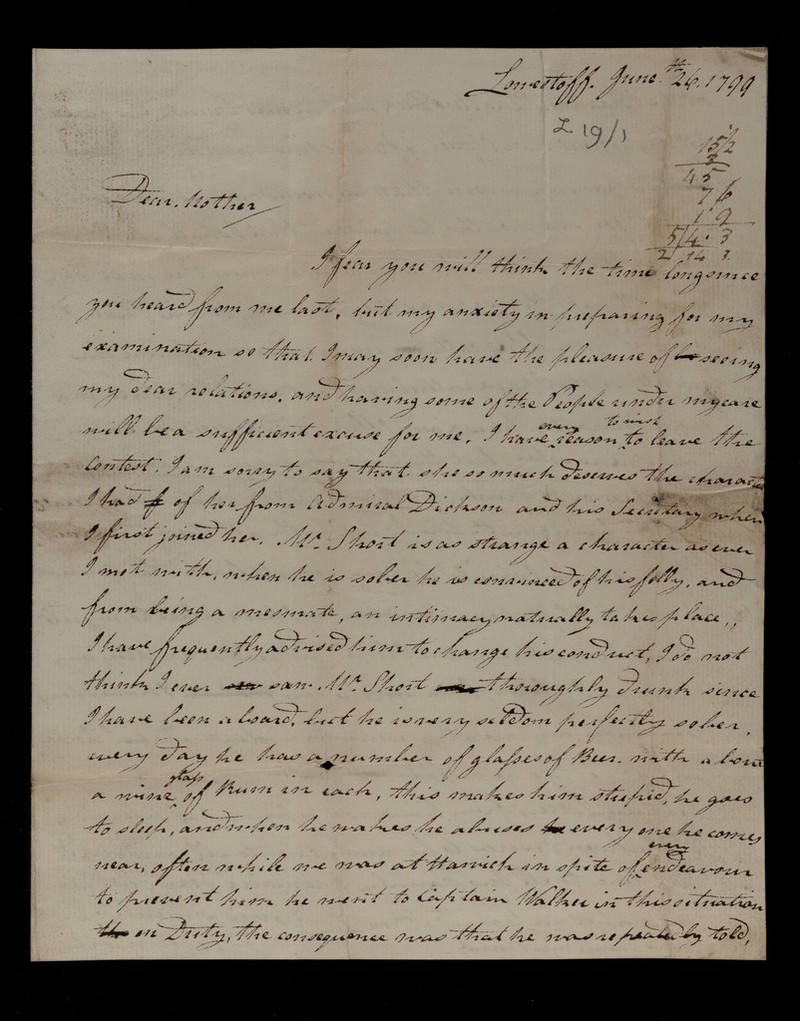 Lowestoff. June. 26.th 1799
L 19/1
15/2
3
45
7 6
1 9
5/4. 3
2/14 3
Dear. Mother
I fear you will think the time long since
you heard from me last, but my anxiety in preparing for my
examination so that I may soon have the pleasure of seeing
my dear relations, and having some of the People under my care
will be a sufficient excuse for me. I have every reason to wish to leave the
Contest. I am sorry to say that she so much deserves the character
I had of her from Admiral Dickson and his Secretary when
I first joined her. Mr. Short is as strange a character as ever
I met with, when he is sober he is convinced of his folly, and
from being a mesmate, an intimacy naturally takes place,,
I have frequently advised him to change his conduct, I do not
think I ever saw Mr. Short thoroughly drunk since
I have been aboard, but he is very seldom perfectly sober.
every day he has a number of glasses of Beer. with about
a wine glass of Rum in each, this makes him stupid, he goes
to sleep, and when he wakes he abuses every one he comes
near, often while we was at Harwich in spite of every endeavour
to prevent him he went to Captain Walker in this situation
on Duty, the consequence was that he was repeatedly told,